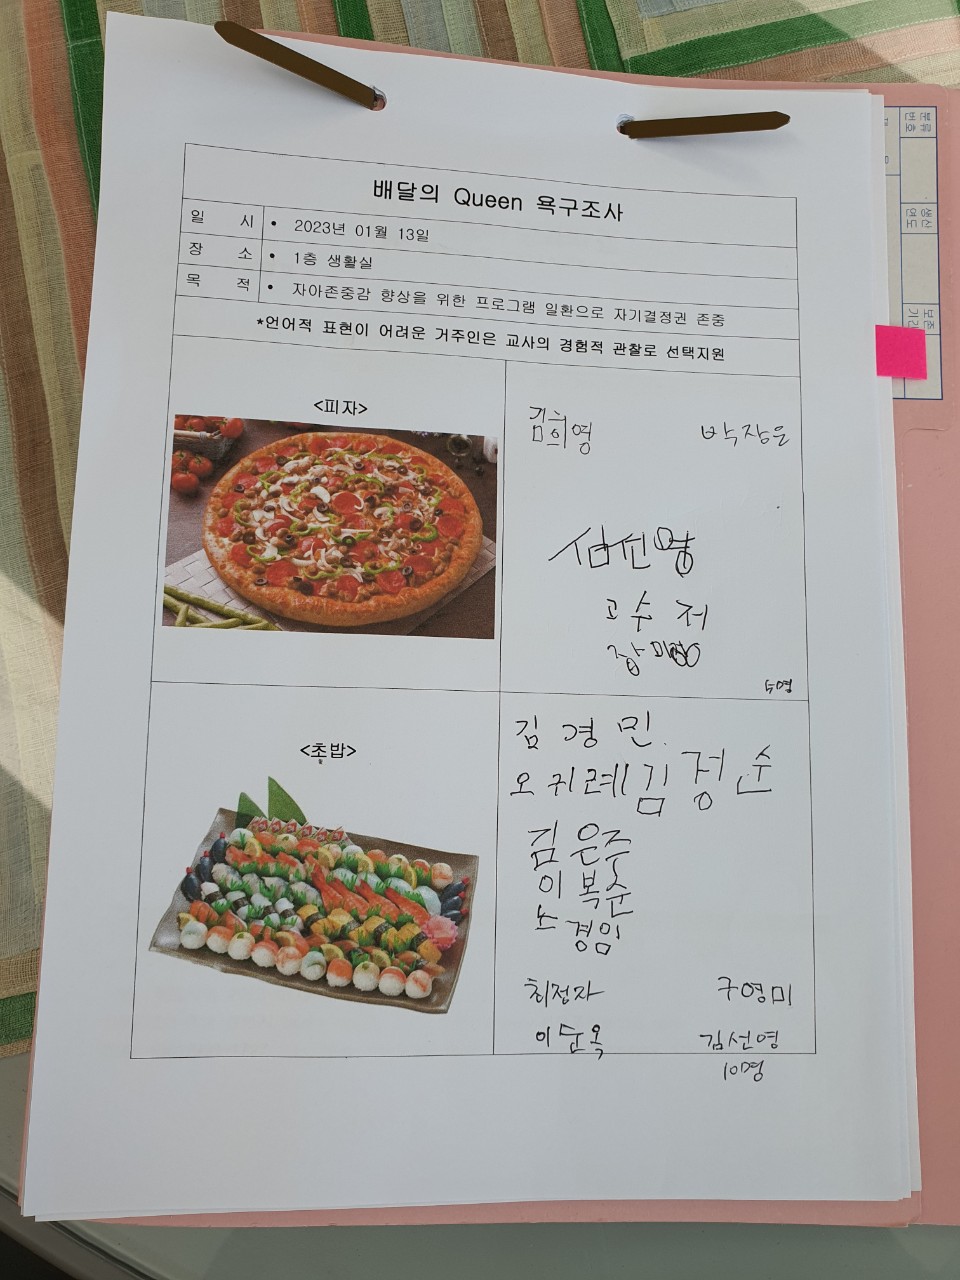 배달의 Queen 욕구조사
일 시 • 2023년 01월 13일
장 소 • 1층 생활실
목 적 • 자아존중감 향상을 위한 프로그램 일환으로 자기결정권 존중
*언어적 표현이 어려운 거주인은 교사의 경험적 관찰로 선택지원
<피자>
김희영 박장은
심선영
고수저
장미영
5명
<초밥>
김경민.
오귀례 김정순
김은주
이복순
노경임
최정자 구영미
이순옥 김선영
10명
분류번호
생산연도
보존기간